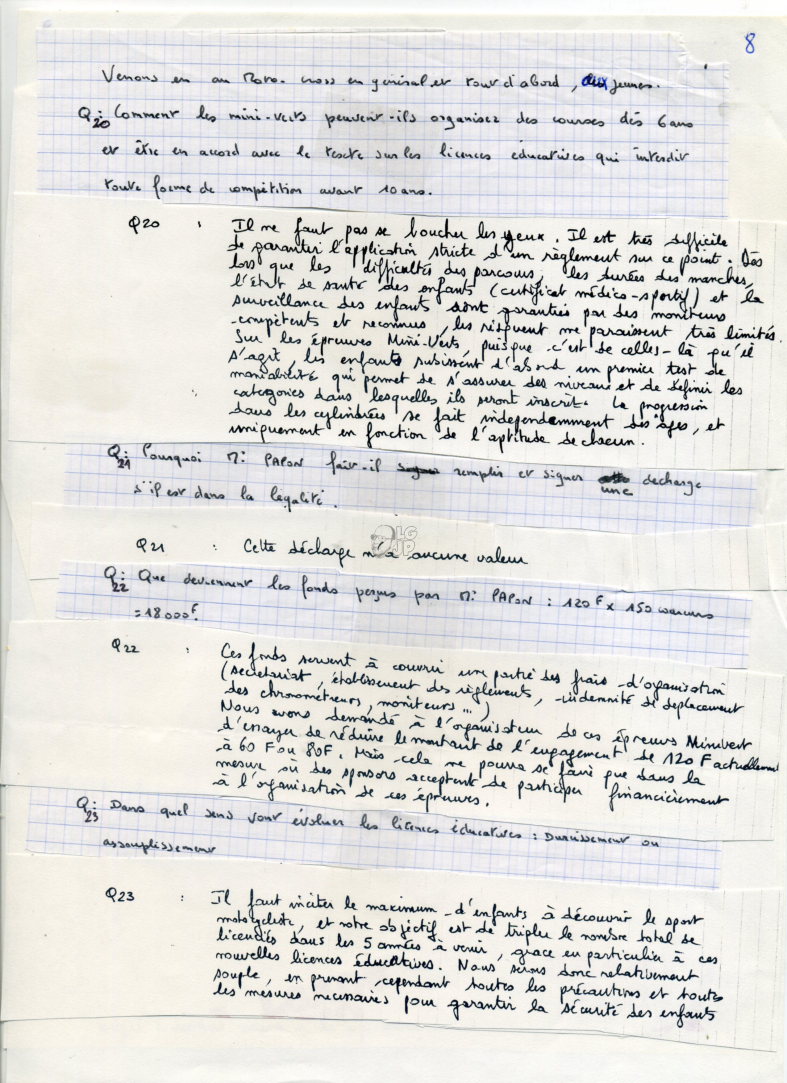 8
Venons en au Moto-cross en général et tout d'abord, aux jeunes.
Q: 20 Comment les mini-verts peuvent-ils organiser des courses dès 6 ans
et être en accord avec le texte sur les licences éducatives qui interdit
toute forme de compétition avant 10 ans.
Q20 : Il ne faut pas se boucher les yeux. Il est très difficile
de garantir l'application stricte d'un règlement sur ce point. Dès
lors que les difficultés des parcours, les durées des manches,
l'état de santé des enfants (certificat médico-sportif) et la
surveillance des enfants sont garanties par des moniteurs
compétents et reconnus, les risquent me paraissent très limités.
Sur les épreuves Mini-Verts, puisque c'est de celles-là qu'il
s'agit, les enfants subissent d'abord un premier test de
maniabilité qui permet de s'assurer des niveaux et de définir les
catégories dans lesquelles ils seront inscrit. La progression
dans les cylindrées se fait indépendamment des âges, et
uniquement en fonction de l'aptitude de chacun.
Q: 21 Pourquoi Mr PAPON fait-il remplir et signer une decharge
s'il est dans la légalité.
LG
JP
Q21 : Cette décharge n'a aucune valeur
Q: 22 Que deviennent les fonds perçus par Mr PAPON : 120 F x 150 coureurs
= 18 000 F.
Q22 : Ces fonds servent à couvrir une partie des frais d'organisation
(secrétariat, établissement des règlements, indemnité de déplacement
des chronométreurs, moniteurs ...)
Nous avons demandé à l'organisateur de ces épreuves Minivert
d'essayer de réduire le montant de l'engagement de 120 F actuellement
à 60 F ou 80F. Mais cela ne pourra se faire que dans la
mesure où des sponsors acceptent de participer financièrement
à l'organisation de ces épreuves.
Q: 23 Dans quel sens vont évoluer les licences éducatives : Durcissement ou
assouplissement
Q23 : Il faut inciter le maximum d'enfants à découvrir le sport
motocycliste, et notre objectif est de tripler le nombre total de
licenciés dans les 5 années à venir, grace en particulier à ces
nouvelles licences éducatives. Nous serons donc relativement
souple, en prenant cependant toutes les précautions et toutes
les mesures necessaires pour garantir la sécurité des enfants